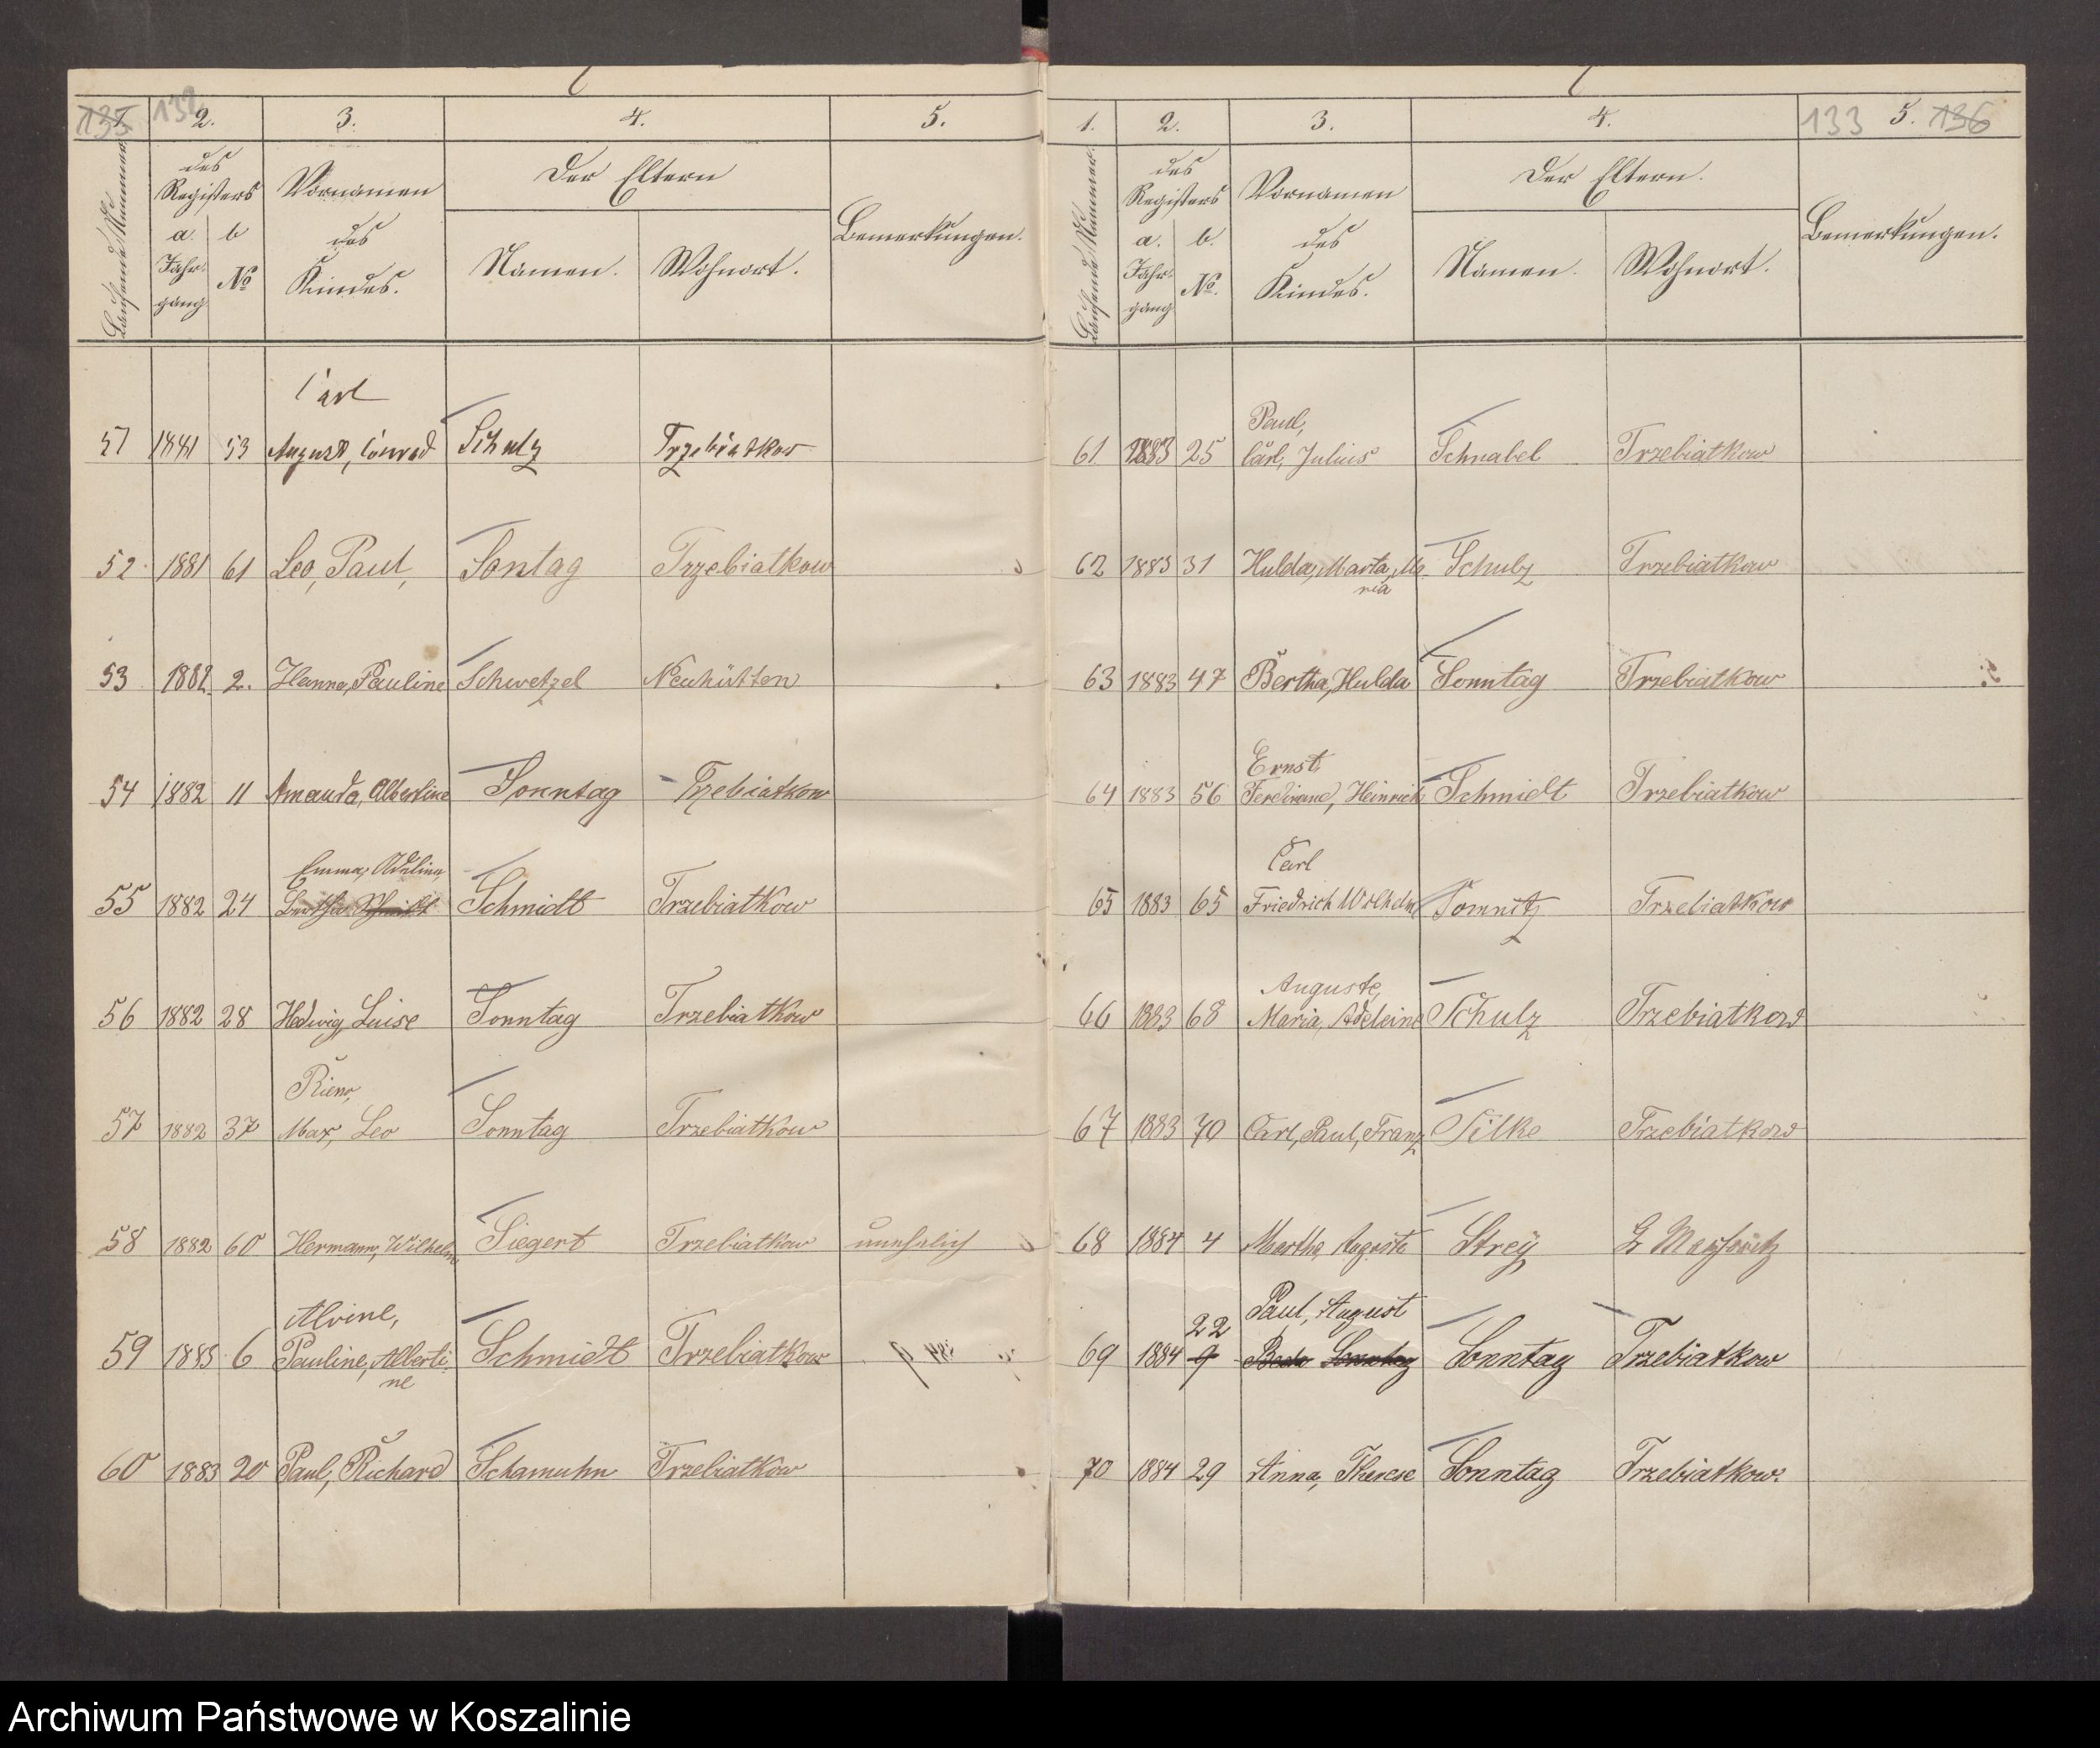 135 132
1. 2. 3. 4. 5.
Laufende Nummer.
des Registers
a. Jahrgang
b No
Vornamen des Kindes.
Der Eltern
Namen. Wohnort.
Bemerkungen.
Carl
51 1881 53 August, Conrad Schulz Trzebiatkow
52 1881 61 Leo, Paul, Sontag Trzebiatkow
53 1882 2. Hanna, Pauline Schwetzel Neuhütten
54 1882 11 Amanda, Albertine Sonntag Trzebiatkow
Emma, Adeline,
55 1882 24 Bertha Schmidt Schmidt Trzebiatkow
56 1882 28 Hedwig, Luise Sonntag Trzebiatkow
57 1882 37 Max, Leo Sonntag Trzebiatkow
58 1882 60 Hermann, Wilhelm Siegert Trzebiatkow unehelich
Alvine,
59 1883 6 Pauline, Alberti-
ne Schmidt Trzebiatkow
60 1883 20 Paul, Richard Schamuhn Trzebiatkow
133 136
1. 2. 3. 4. 5.
Laufende Nummer.
des Registers
a. Jahrgang
b. No.
Vornamen des Kindes.
Der Eltern.
Namen. Wohnort.
Bemerkungen.
Paul,
61 1883 25 Carl, Julius Schnabel Trzebiatkow
62 1883 31 Hulda, Marta, Ma-
ria Schulz Trzebiatkow
63 1883 47 Bertha, Hulda Sonntag Trzebiatkow
Ernst
64 1883 56 Ferdinand, Heinrich Schmidt Trzebiatkow
Carl
65 1883 65 Friedrich Wilhelm Somnitz Trzebiatkow
Auguste,
66 1883 68 Maria, Adeleine Schulz Trzebiatkow
67 1883 70 Carl, Paul, Franz Silke Trzebiatkow
68 1884 4 Martha Auguste Strey Gr Massowitz
22 Paul, August
69 1884 9 Sonntag Sonntag Trzebiatkow
70 1884 29 Anna, Therese Sonntag Trzebiatkow.
Archiwum Państwowe w Koszalinie